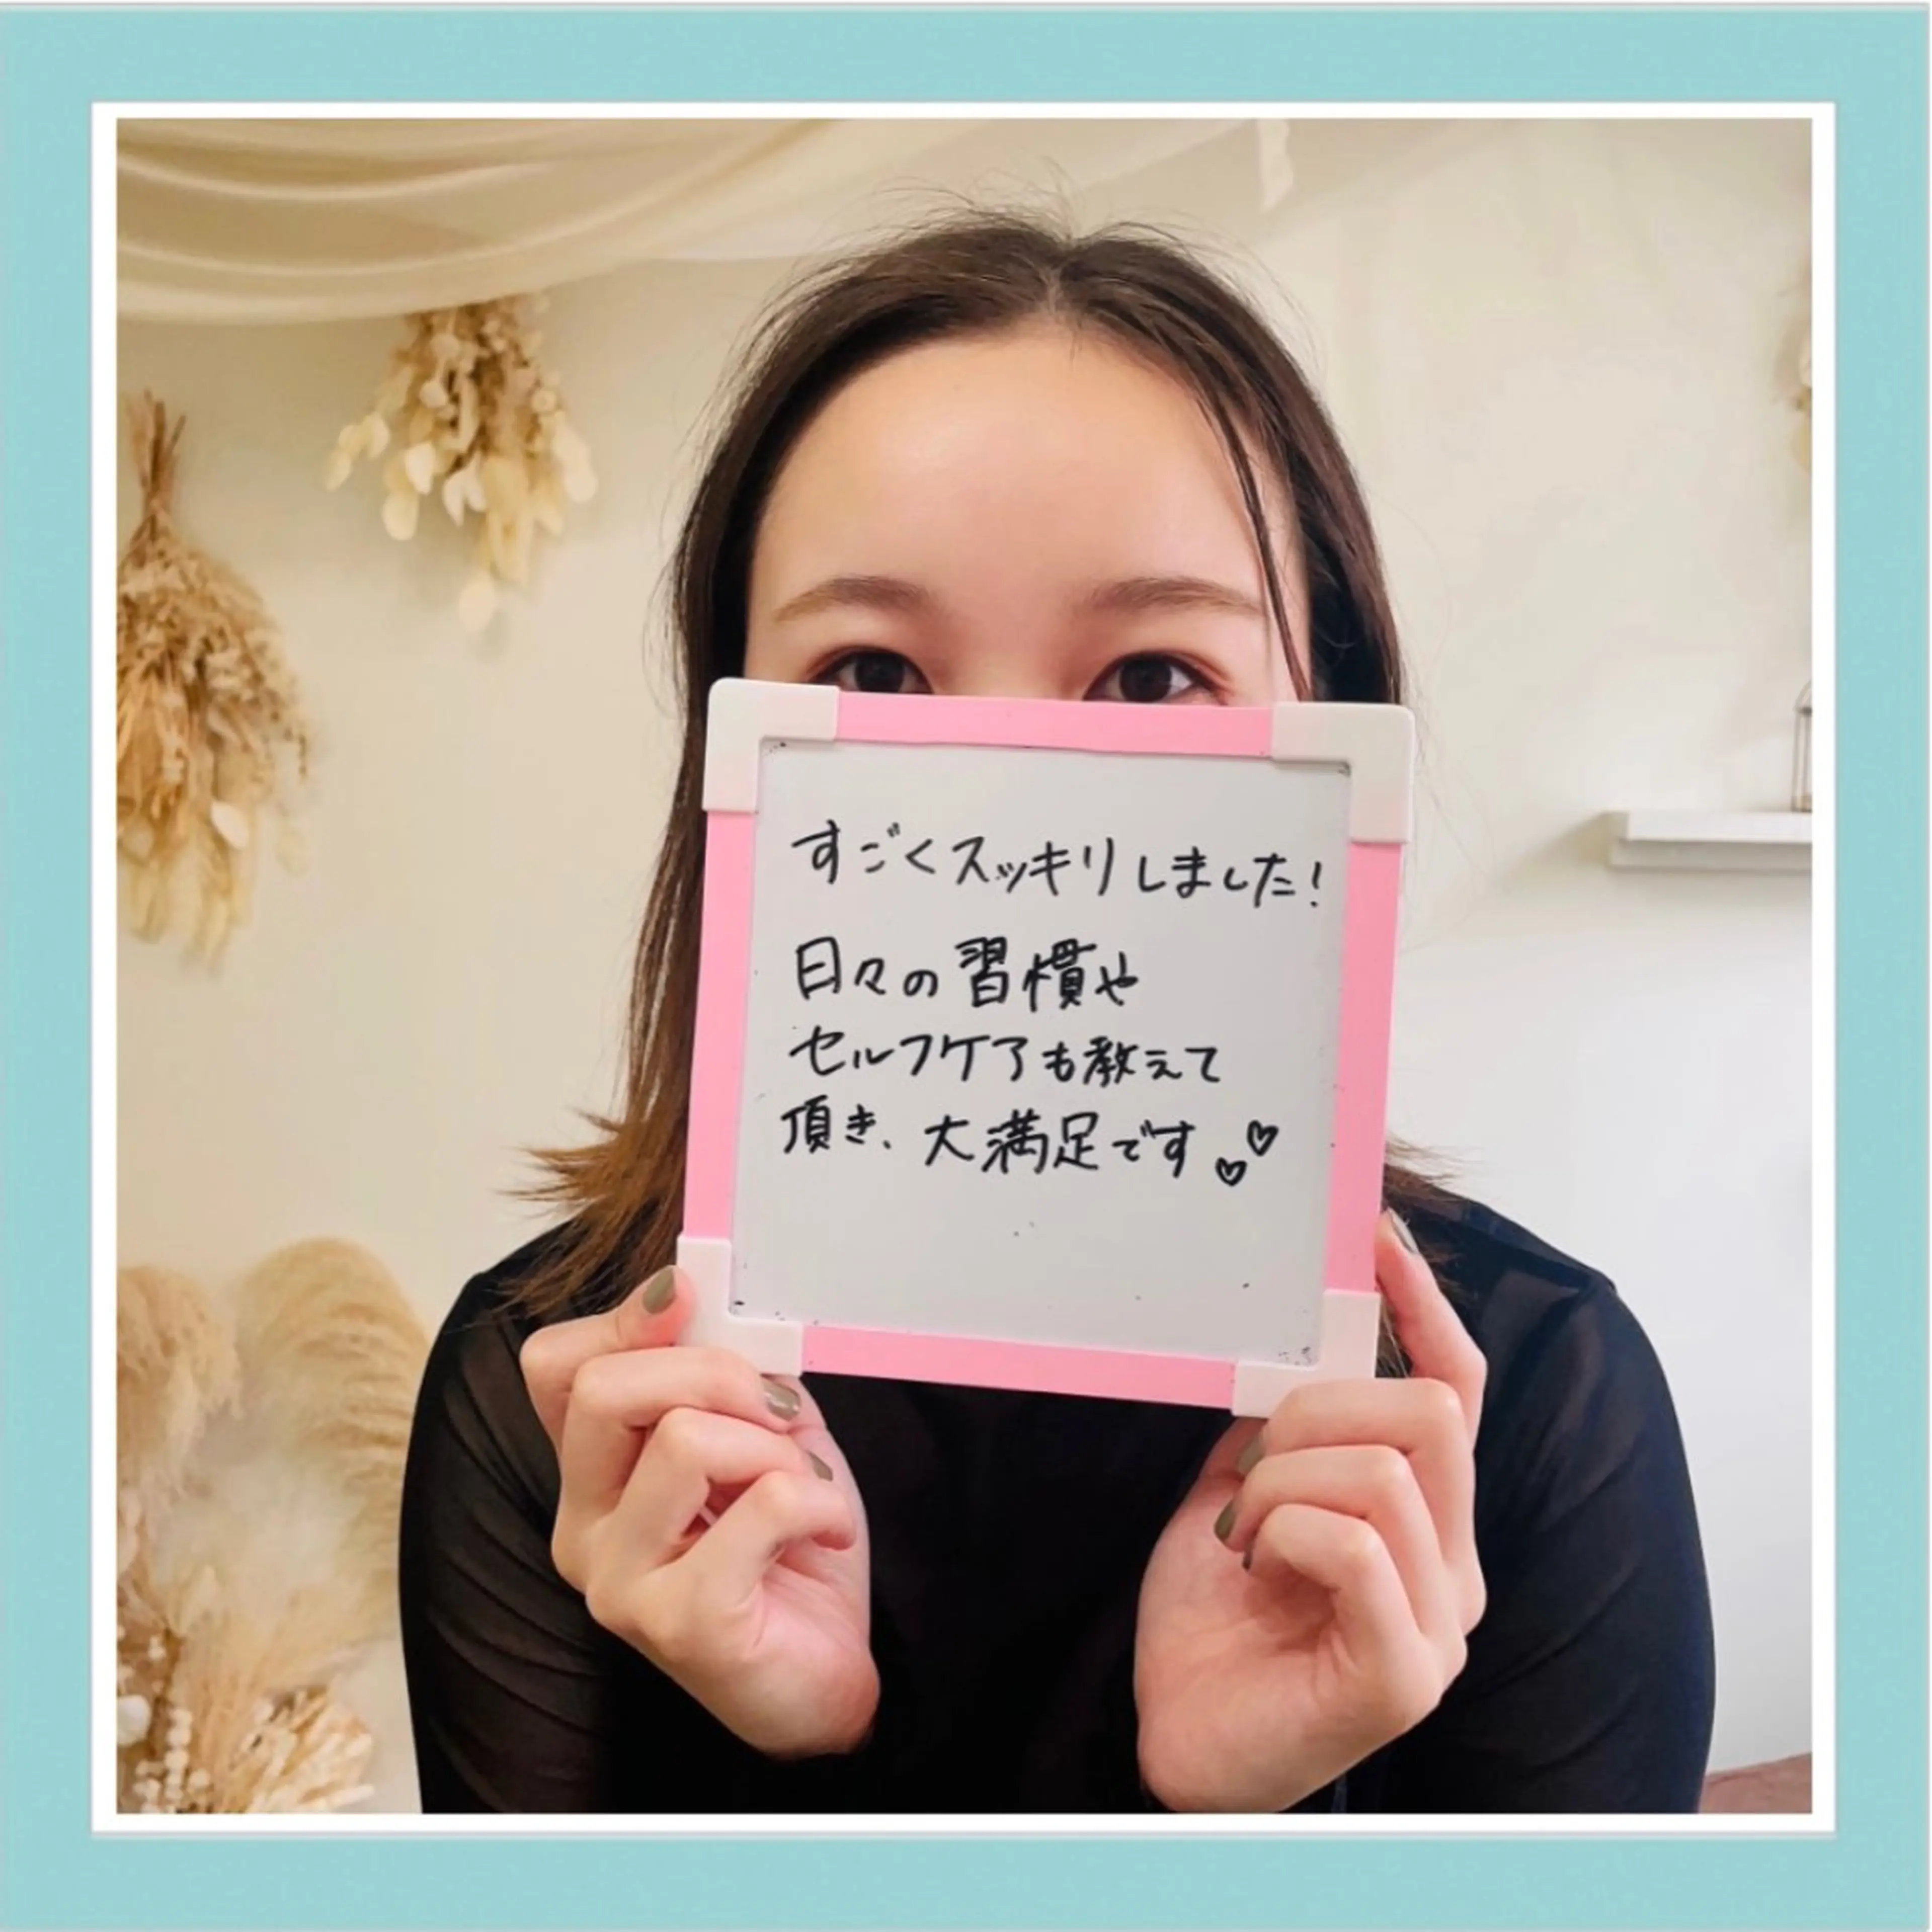 すごくスッキリしました!
日々の習慣や
セルフケアも教えて
頂き、大満足です♡♡